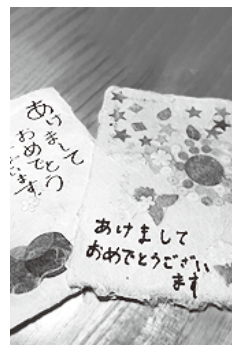 あけまして
おめでとう
ございます
あけまして
おめでとうござい
ます